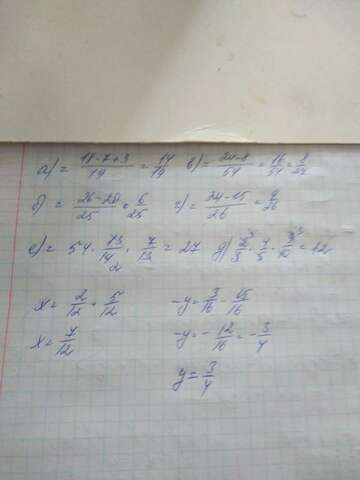 а) = \frac{18-7+3}{19} = \frac{14}{19} в) = \frac{24-8}{54} = \frac{16}{54} = \frac{8}{27}
б) = \frac{26-20}{25} = \frac{6}{25} г) = \frac{24-15}{26} = \frac{9}{26}
е) = 54 · \frac{13}{14} · \frac{7}{13} = 27 д) = 12
x = \frac{2}{12} + \frac{5}{12} -y = \frac{3}{16} - \frac{15}{16}
x = \frac{7}{12} -y = -\frac{12}{16} = -\frac{3}{4}
y = \frac{3}{4}